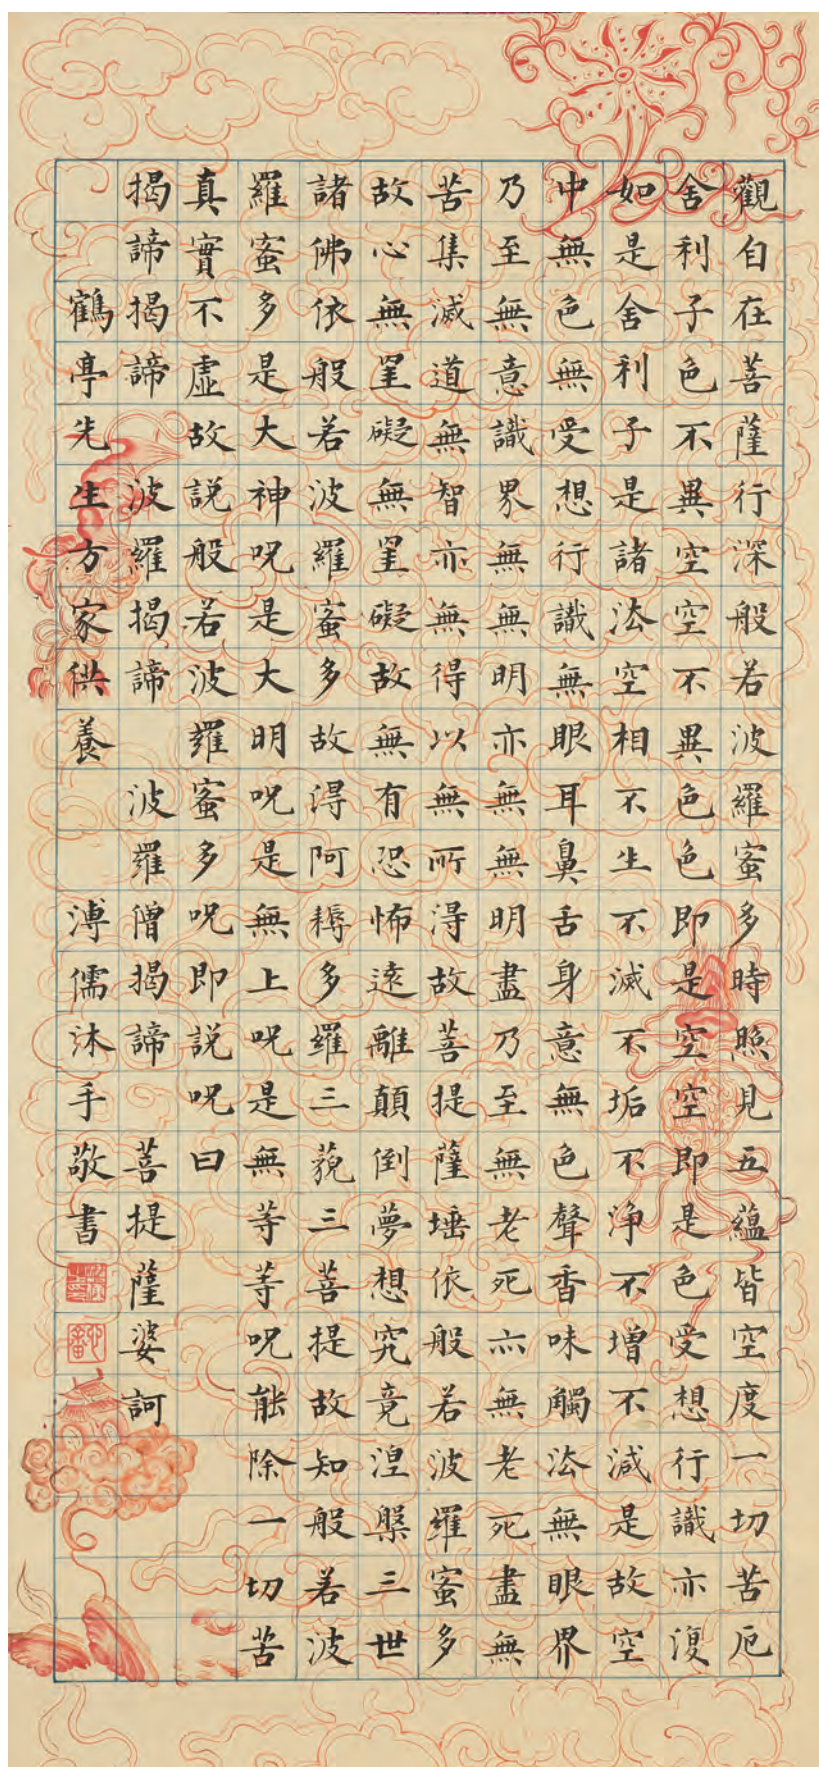 觀自在菩薩行深般若波羅蜜多時照見五蘊皆空度一切苦厄
舍利子色不異空空不異色色即是空空即是色受想行識亦復
如是舍利子是諸法空相不生不滅不垢不淨不增不減是故空
中無色無受想行識無眼耳鼻舌身意無色聲香味觸法無眼界
乃至無意識界無無明亦無無明盡乃至無老死亦無老死盡無
苦集滅道無智亦無得以無所得故菩提薩埵依般若波羅蜜多
故心無罣礙無罣礙故無有恐怖遠離顛倒夢想究竟涅槃三世
諸佛依般若波羅蜜多故得阿耨多羅三藐三菩提故知般若波
羅蜜多是大神呪是大明呪是無上呪是無等等呪能除一切苦
真實不虛故說般若波羅蜜多呪即說呪曰
揭諦揭諦 波羅揭諦 波羅僧揭諦 菩提薩婆訶
鶴亭先生方家供養 溥儒沐手敬書